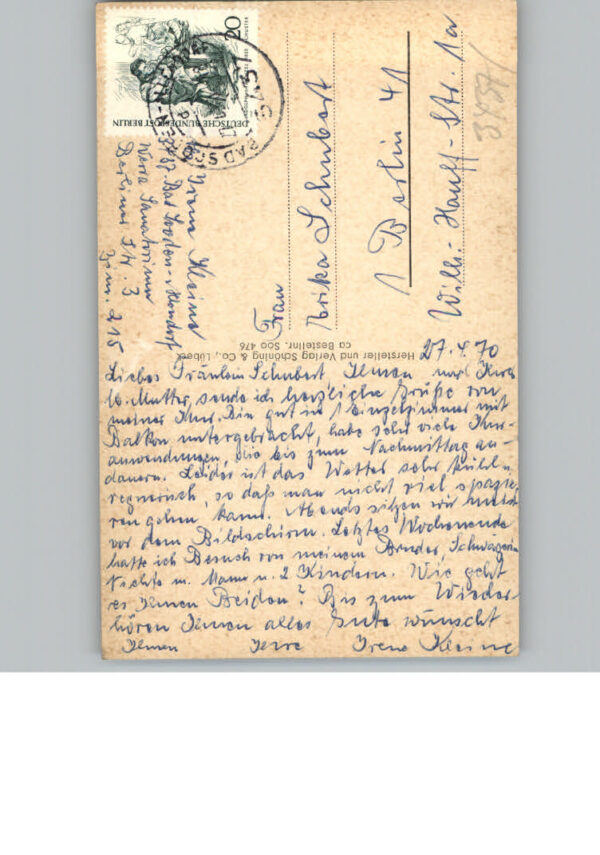 27.4.70
Liebes Fräulein Schubert, Ihnen und Ihrer
lb. Mutter, sende ich herzliche Grüße von
meiner Kur. Bin gut in 1 Einzelzimmer mit
Balkon untergebracht, habe sehr viele Kur-
anwendungen, die bis zum Nachmittag an-
dauern. Leider ist das Wetter sehr kühl u.
regnerisch, so daß man nicht viel spazie-
ren gehen kann. Abends sitzen wir meist
vor dem Bildschirm. Letztes Wochenende
hatte ich Besuch von meinem Bruder, Schwägerin
Nichte m. Mann u. 2 Kindern. Wie geht
es Ihnen Beiden? Bis zum Wieder-
hören Ihnen alles Gute wünscht
Ihnen Ihre Irene Kleine
Irene Kleine
3437 Bad Sooden-Allendorf
Werra Sanatorium
Berliner Str. 3
Zim. 215
DEUTSCHE BUNDESPOST BERLIN
20
BAD SOODEN-ALLENDORF
Frau
Erika Schubert
1 Berlin 41
Wilh.-Hauff-Str. 1a
3437/
Hersteller und Verlag Schöning & Co., Lübeck
ca Bestellnr. Soo 476